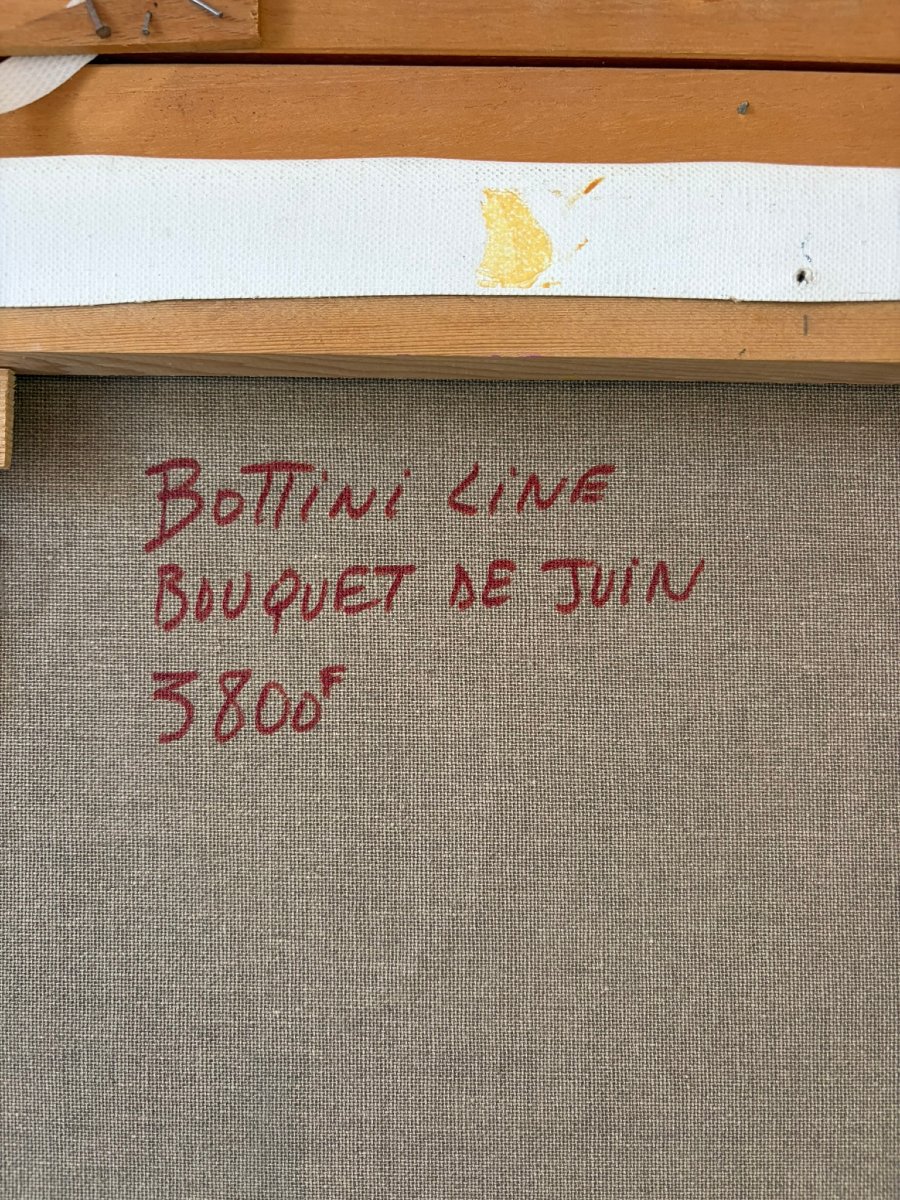 BOTTiNi LiNE
BOUQUET DE JUiN
3800F